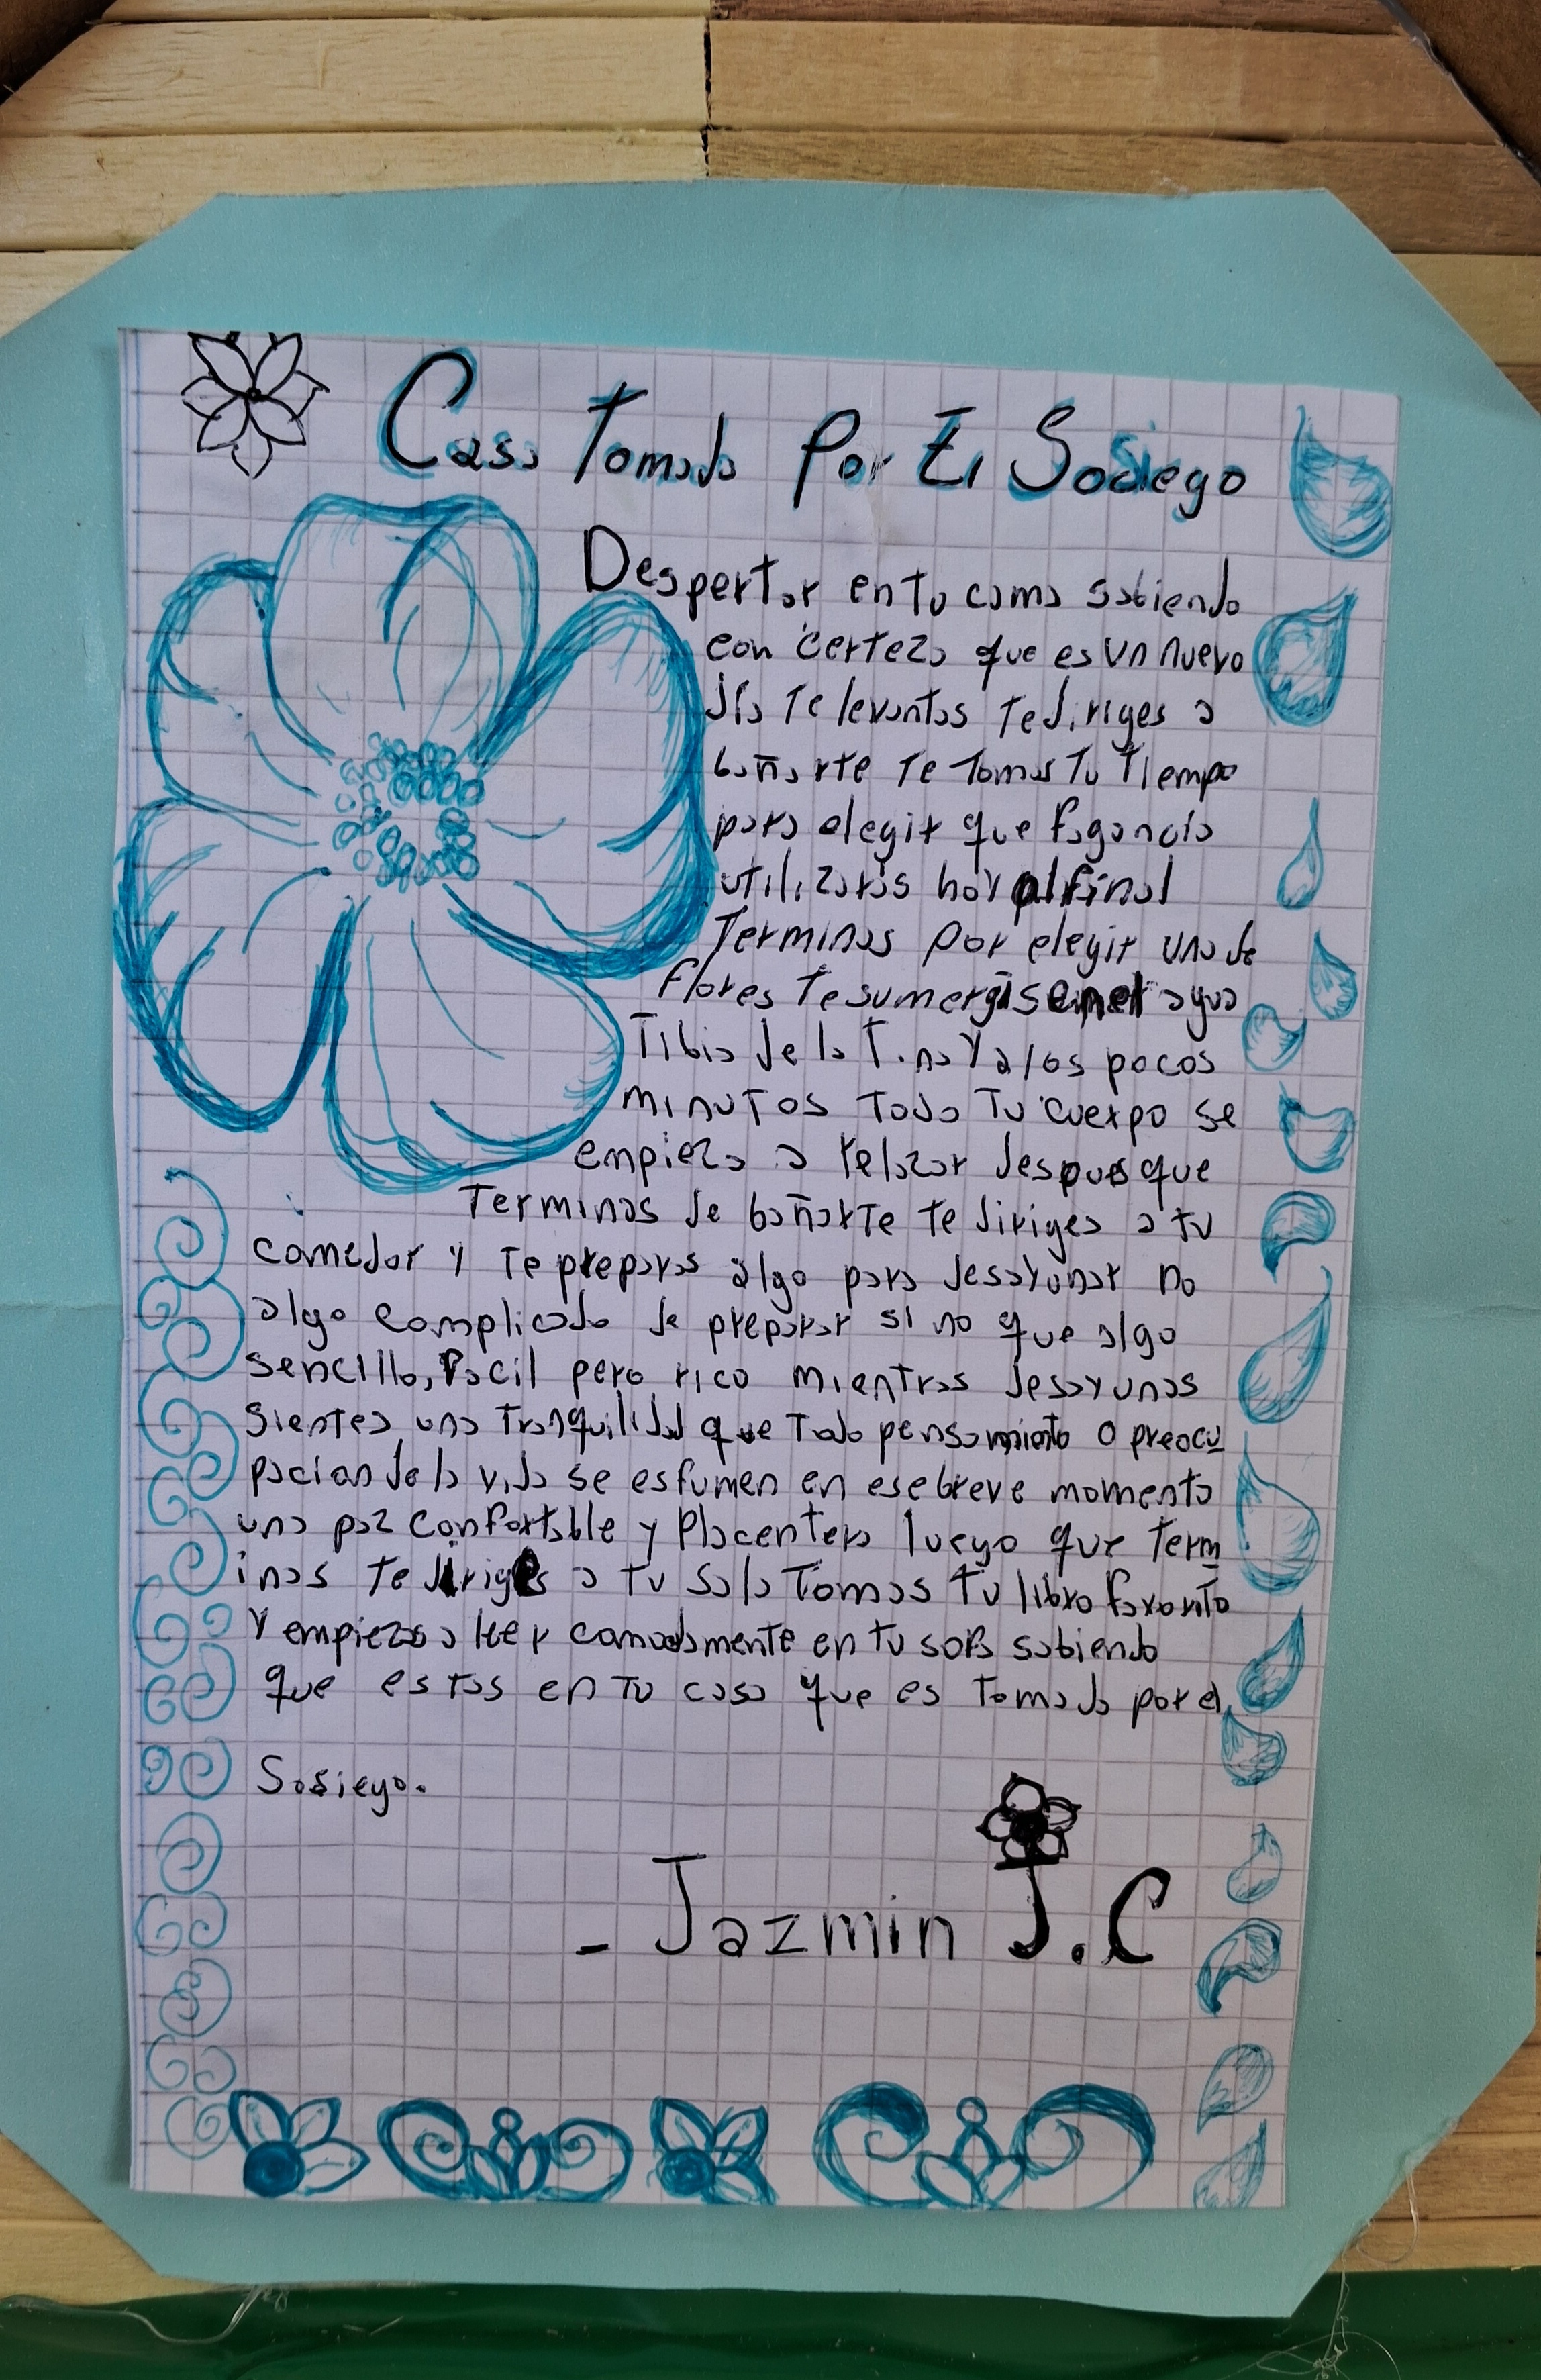 Casa Tomada Por El Sosiego
Despertar en tu cama sabiendo
con certeza que es un nuevo
día te levantas te diriges a
bañarte te tomas tu tiempo
para elegir que fagancia
utilizaras hoy al final
terminas por elegir una de
flores te sumergis en el agua
tibia de la tina y a los pocos
minutos todo tu cuerpo se
empieza a relazar despues que
terminas de bañarte te diriges a tu
comedor y te preparas algo para desayunar no
algo complicado de preparar si no que algo
sencillo, facil pero rico mientras desayunas
sientes una tranquilidad que todo pensamiento o preocu
pacion de la vida se esfumen en ese breve momento
una paz confortable y placentera luego que term
inas te diriges a tu sala tomas tu libro favorito
y empiezas a leer comodamente en tu sofa sabiendo
que estas en tu casa que es tomada por el
Sosiego.
- Jazmin J.C